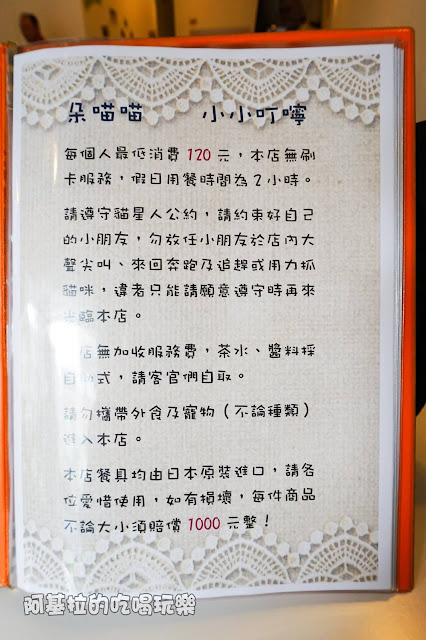 朵喵喵　小小叮嚀
每個人最低消費 120 元，本店無刷
卡服務，假日用餐時間為 2 小時。
請遵守貓星人公約，請約束好自己
的小朋友，勿放任小朋友於店內大
聲尖叫、來回奔跑及追趕或用力抓
貓咪，違者只能請願意遵守時再來
光臨本店。
店無加收服務費，茶水、醬料採
自助式，請客官們自取。
請勿攜帶外食及寵物（不論種類）
進入本店。
本店餐具均由日本原裝進口，請各
位愛惜使用，如有損壞，每件商品
不論大小須賠償 1000 元整！
阿基拉的吃喝玩樂